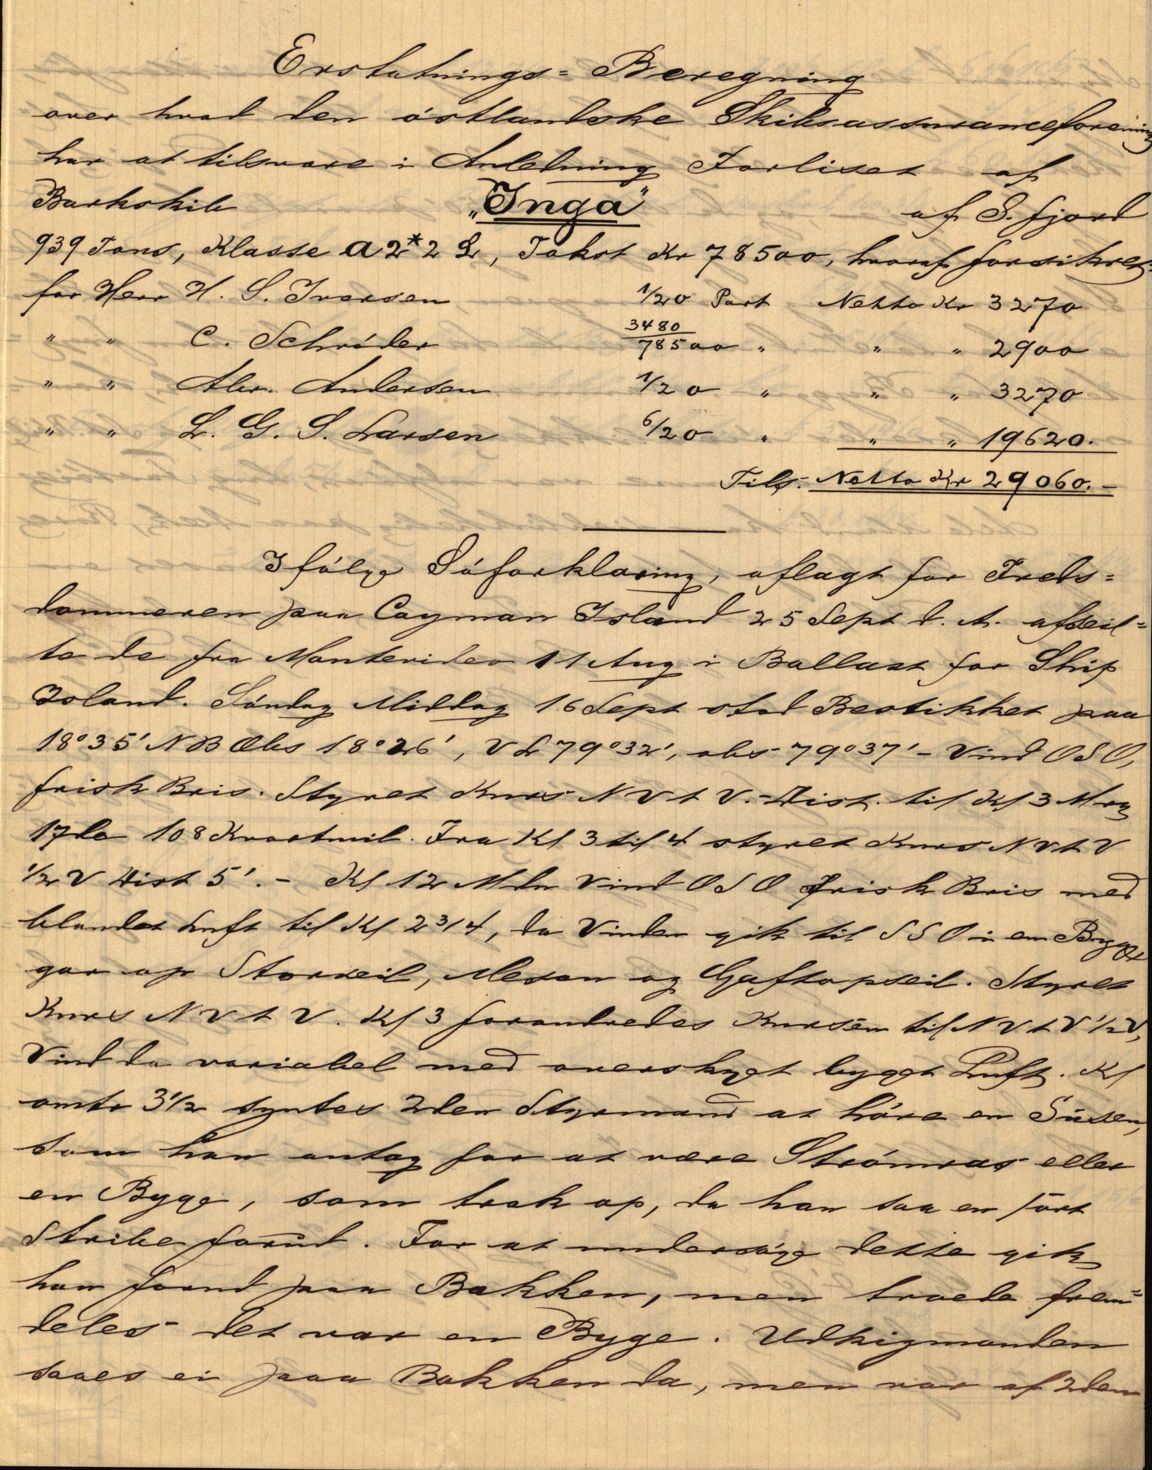 Erstatnings= Beregning
over hvad den östlandske Skibsassuranceforening
har at tilsvare i Anledning Forliset af
Barkskib "Inga" af S. fjord
939 Tons, Klasse A2*2 L, Takst Kr 78500, hvoraf forsikret
for Herr H. S. Iversen 1/20 Part Netto Kr 3270
" " C. Schröder 3480/78500 " " " 2900
" " Alex. Andersen 1/20 " " " 3270
" " L. G. S. Larsen 6/20 " " " 19620.
Tils. Netto Kr 29060.-
Ifölge Söforklaring, aflagt for Freds=
dommeren paa Cayman Island 25 Sept d. A. afseil=
te de fra Montevideo 11 Aug i Ballast for Ship
Island. Söndag Middag 16 Sept stod Bestikket paa
18°35' NB Obs 18°26', VL 79°32', obs 79°37' - Vind OSO,
frisk Bris. Styret Kurs NVtV. - Dist. til Kl 3 Mrg
17de 108 Kvartmil. Fra Kl 3 til 4 styret Kurs NVtV
1/2 V Dist 5'. - Kl 12 Mdn Vind OSO frisk Bris med
blandet Luft til Kl 2 3/4, da Vinden gik til SSO i en Byge
gav op Storseil, Mesan og Gaftopseil. Styret
Kurs NVtV. Kl 3 forandredes Kursen til NVtV 1/2 V,
Vind da variabel med overskyet byget Luft. Kl
omtr 3 1/2 syntes 2den Styrmand at höre en Susen,
som han antog for at være Strömras eller
en Byge, som trak op, da han saa en sort
Stribe forud. For at undersöge dette gik
han forud paa Bakken, men troede frem=
deles det var en Byge. Udkigmanden
saaes ei paa Bakken da, men var af 2den